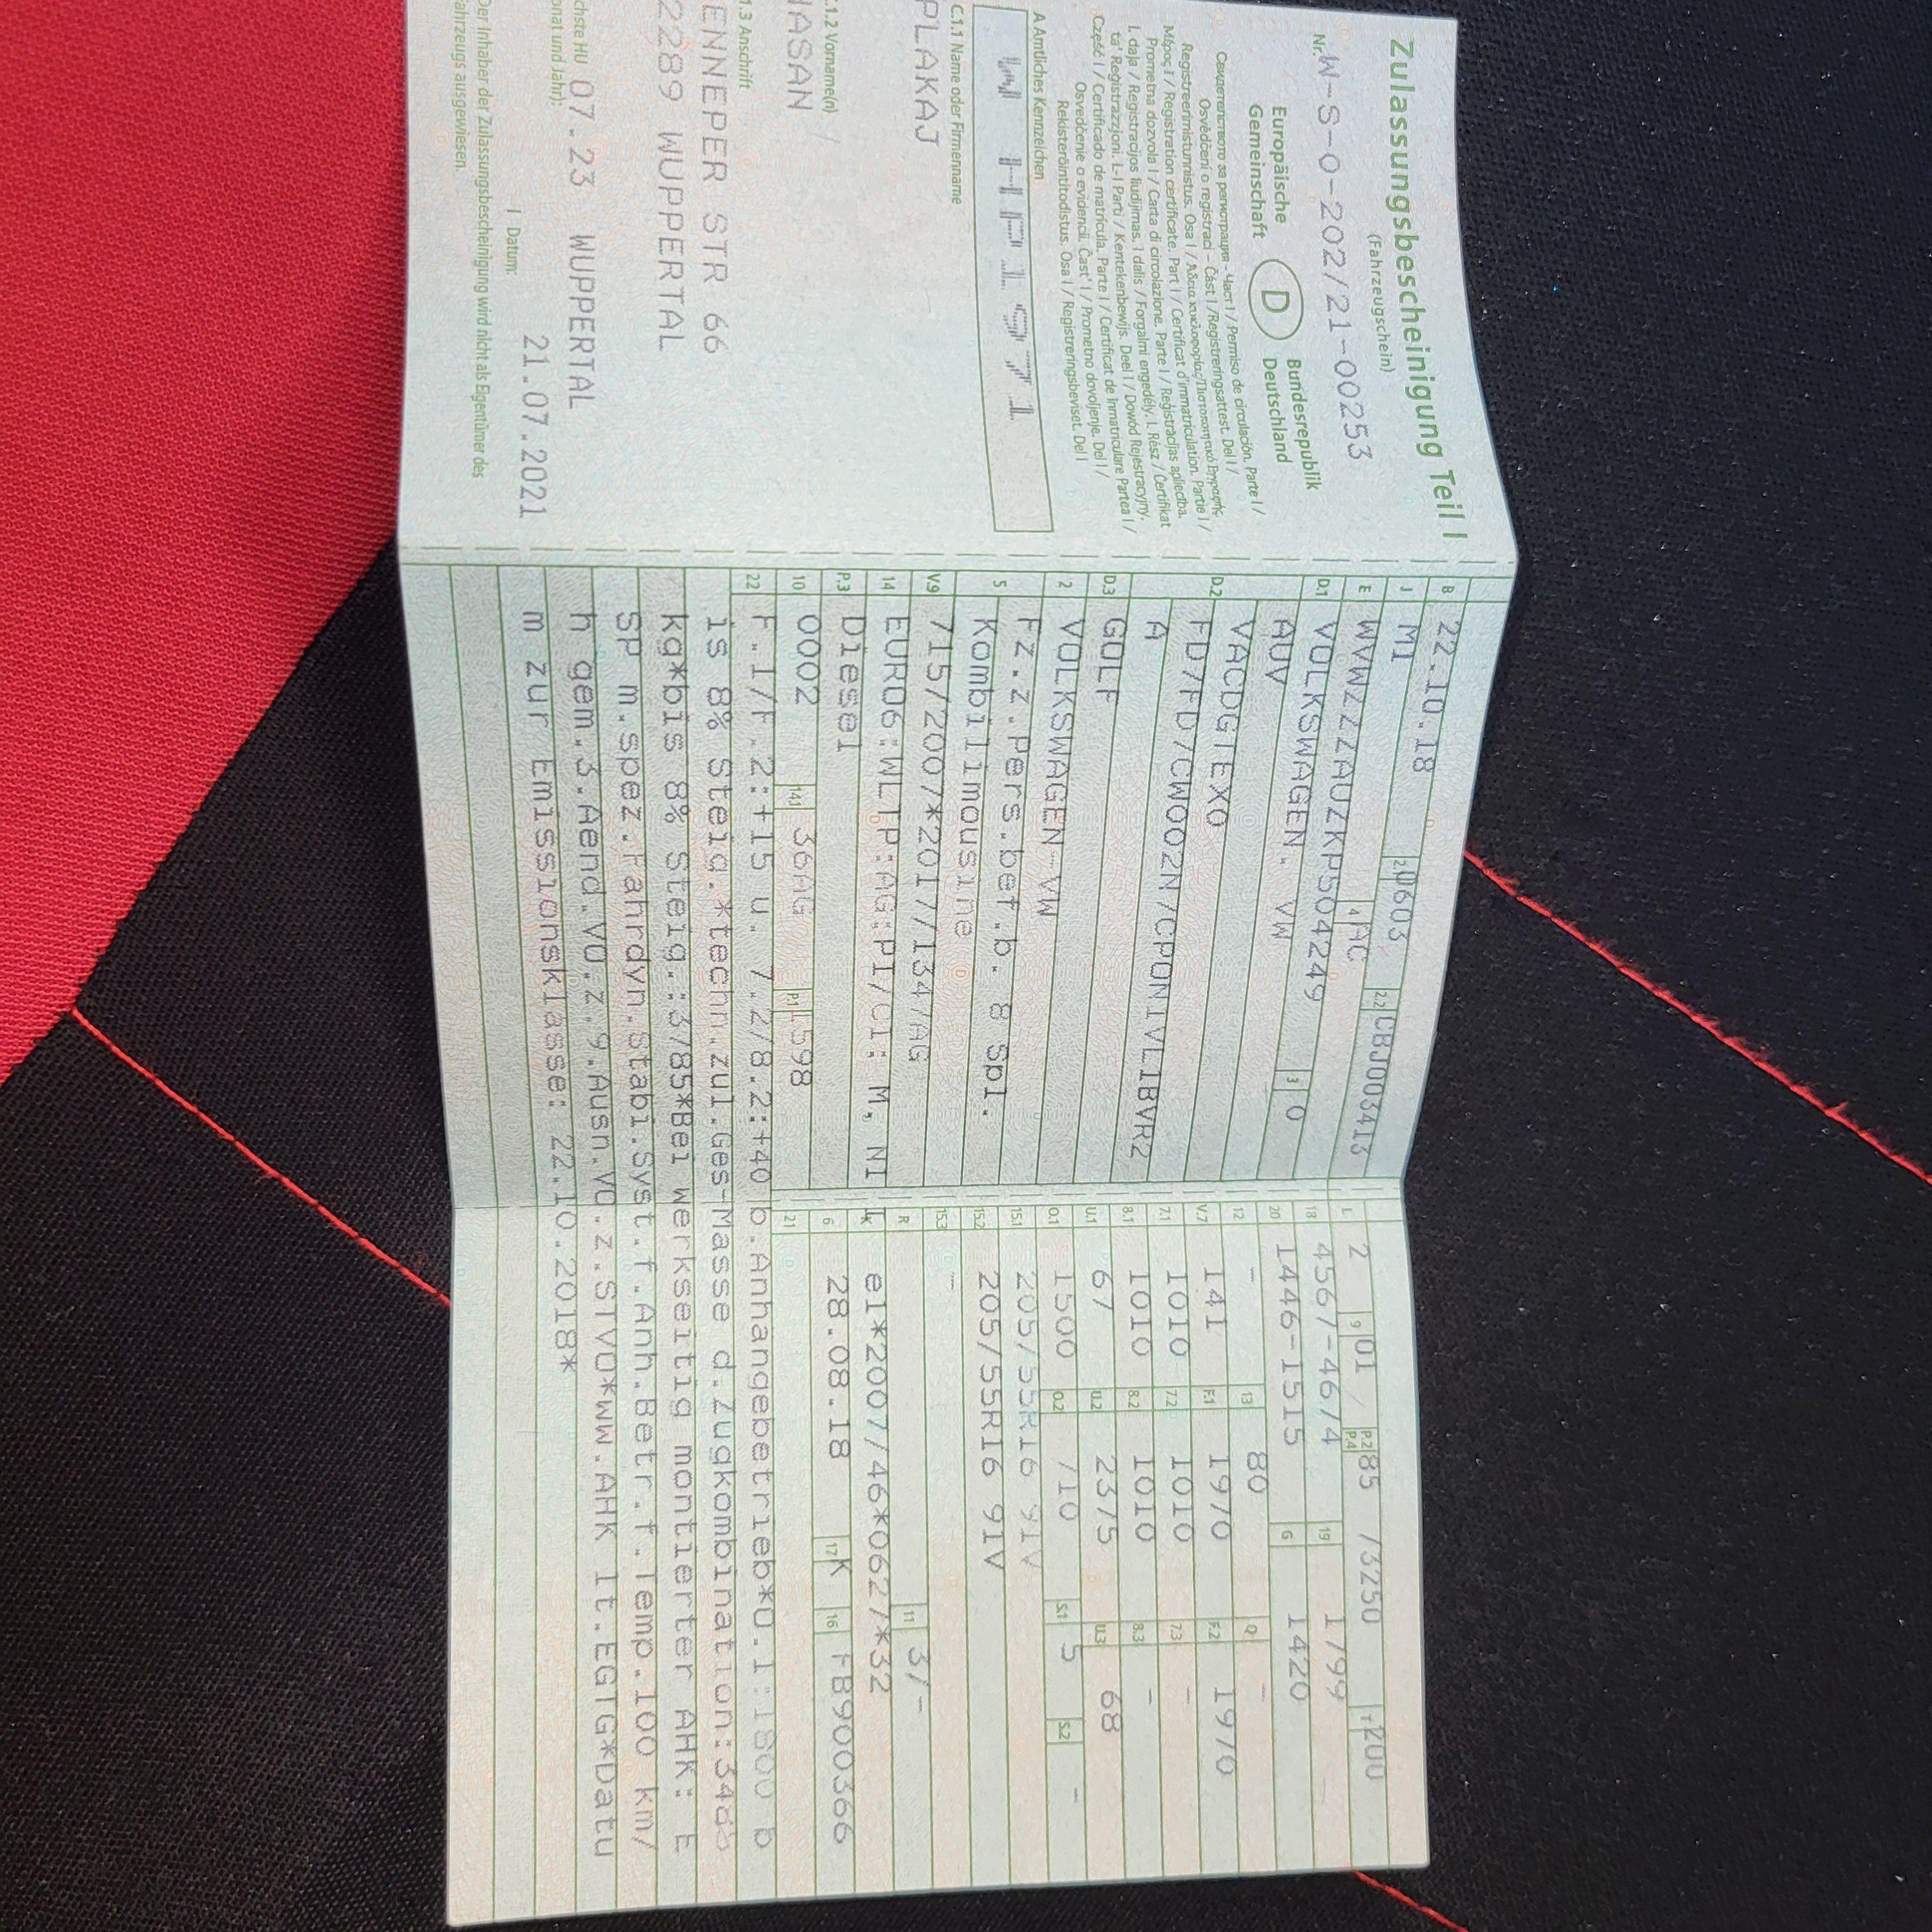 Zulassungsbescheinigung Teil I
(Fahrzeugschein)
Nr. W-S-0-202/21-00253
Europäische Gemeinschaft
D
Bundesrepublik Deutschland
Свидетелството за регистрация - Част I / Permiso de circulación. Parte I /
Osvědčení o registraci – Část I / Registreringsattest. Del I /
Registreerimistunnistus. Osa I / Άδεια κυκλοφορίας/Πιστοποιητικό Εγγραφής.
Μέρος I / Registration certificate. Part I / Certificat d'immatriculation. Partie I /
Prometna dozvola I / Carta di circolazione. Parte I / Reģistrācijas apliecība.
I. daļa / Registracijos liudijimas. I dalis / Forgalmi engedély. I. Rész / Ċertifikat
ta' Reġistrazzjoni. L-I Parti / Kentekenbewijs. Deel I / Dowód Rejestracyjny.
Część I / Certificado de matrícula. Parte I / Certificat de înmatriculare Partea I /
Osvedčenie o evidencii. Časť I / Prometno dovoljenje. Del I /
Rekisteröintitodistus. Osa I / Registreringsbeviset. Del I
A Amtliches Kennzeichen
W HP1971
C.1.1 Name oder Firmenname
PLAKAJ
C.1.2 Vorname(n)
HASAN
1.3 Anschrift
ENNEPER STR 66
2289 WUPPERTAL
chste HU 07.23 WUPPERTAL
onat und Jahr):
I Datum: 21.07.2021
Der Inhaber der Zulassungsbescheinigung wird nicht als Eigentümer des
ahrzeugs ausgewiesen.
B 22.10.18 2.1 0603 2.2 CBJ003413
J M1 4 AC
E WVWZZZAUZKP504249 3 0
D.1 VOLKSWAGEN, VW
AUV
D.2 VACDGTEX0
FD7FD7CW002N7CPON1VL1BVR2
A
D.3 GOLF
2 VOLKSWAGEN-VW
5 Fz.z.Pers.bef.b. 8 Spl.
Kombilimousine
V.9 715/2007*2017/1347AG
14 EURO6;WLTP;AG;PI/CI; M, N1 I
P.3 Diesel
10 0002 14.1 36AG P.1 1598
22 F.1/F.2:+15 u. 7.2/8.2:+40 b.Anhangebetrieb*O.1:1800 b
is 8% Steig.*techn.zul.Ges-Masse d.Zugkombination:34
kg*bis 8% Steig.:3785*Bei werkseitig montierter AHK: E
SP m.spez.Fahrdyn.Stabi.Syst.f.Anh.Betr.f.Temp.100 km/
h gem.3.Aend.VO.z.9.Ausn.VO.z.STVO*ww.AHK lt.EGTG*Datu
m zur Emissionsklasse: 22.10.2018*
L 2 9 01 P.2 P.4 85 /3250 T 200
18 4567-4674 19 1799
20 1446-1515 G 1420
12 - 13 80 Q -
V.7 141 F.1 1970 F.2 1970
7.1 1010 7.2 1010 7.3 -
8.1 1010 8.2 1010 8.3 -
U.1 67 U.2 2375 U.3 68
O.1 1500 O.2 710 S.1 5 S.2 -
15.1 205/55R16 91V
15.2 205/55R16 91V
15.3 -
R 11 3/-
K e1*2007/46*0627*32
6 28.08.18 17 K 16 FB900366
21